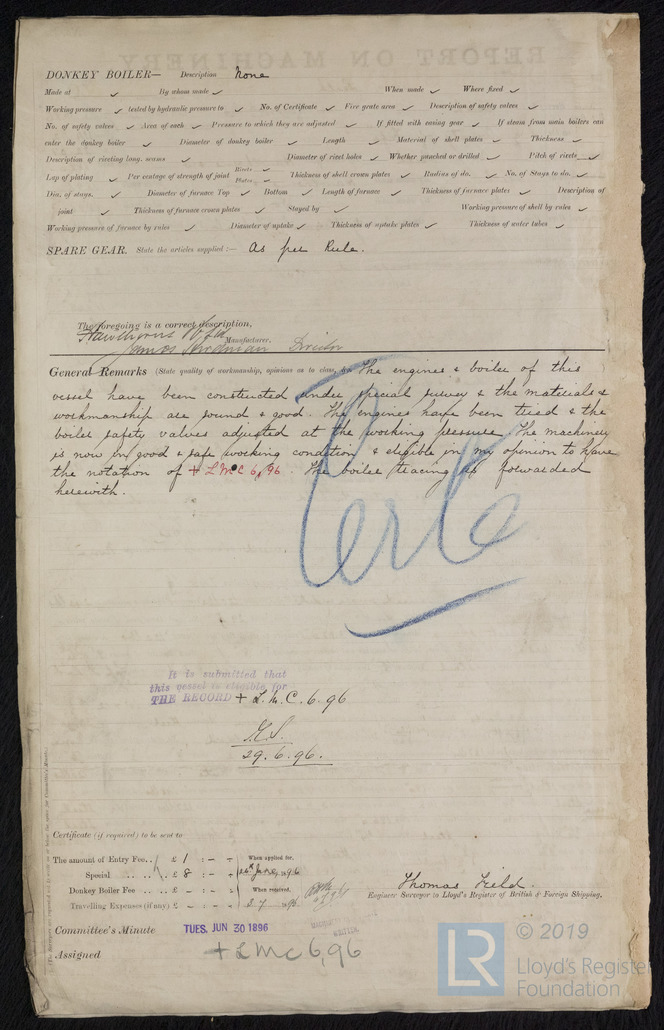 DONKEY BOILER— Description None
Made at ✓ By whom made ✓ When made ✓ Where fixed ✓
Working pressure ✓ tested by hydraulic pressure to ✓ No. of Certificate ✓ Fire grate area ✓ Description of safety valves ✓
No. of safety valves ✓ Area of each ✓ Pressure to which they are adjusted ✓ If fitted with easing gear ✓ If steam from main boilers can
enter the donkey boiler ✓ Diameter of donkey boiler ✓ Length ✓ Material of shell plates ✓ Thickness ✓
Description of riveting long. seams ✓ Diameter of rivet holes ✓ Whether punched or drilled ✓ Pitch of rivets ✓
Lap of plating ✓ Per centage of strength of joint Rivets ✓ Plates ✓ Thickness of shell crown plates ✓ Radius of do. ✓ No. of Stays to do. ✓
Dia. of stays. ✓ Diameter of furnace Top ✓ Bottom ✓ Length of furnace ✓ Thickness of furnace plates ✓ Description of
joint ✓ Thickness of furnace crown plates ✓ Stayed by ✓ Working pressure of shell by rules ✓
Working pressure of furnace by rules ✓ Diameter of uptake ✓ Thickness of uptake plates ✓ Thickness of water tubes ✓
SPARE GEAR. State the articles supplied :— As per Rule.
The foregoing is a correct description,
Hawthorns
Manufacturer.
James Director
General Remarks (State quality of workmanship, opinions as to class, &c. The engines & boiler of this
vessel have been constructed under special survey & the materials &
workmanship are sound & good. The engines have been tried & the
boiler safety valves adjusted at the working pressure. The machinery
is now in good & safe working condition & eligible in my opinion to have
the notation of + LMC 6,96. The boiler tracing is forwarded
herewith.
It is submitted that
this vessel is eligible for
THE RECORD + L.M.C. 6.96
29.6.96.
Certificate (if required) to be sent to
The amount of Entry Fee.. £ 1 : – : When applied for,
Special .. .. £ 8 : – : 26th June 1896
Donkey Boiler Fee .. £ – : – : When received,
Travelling Expenses (if any) £ – : – : 2.7 1896
Thomas Field.
Engineer Surveyor to Lloyd's Register of British & Foreign Shipping.
Committee's Minute TUES. JUN 30 1896
Assigned + LMC 6,96
© 2019
LR Lloyd's Register
Foundation